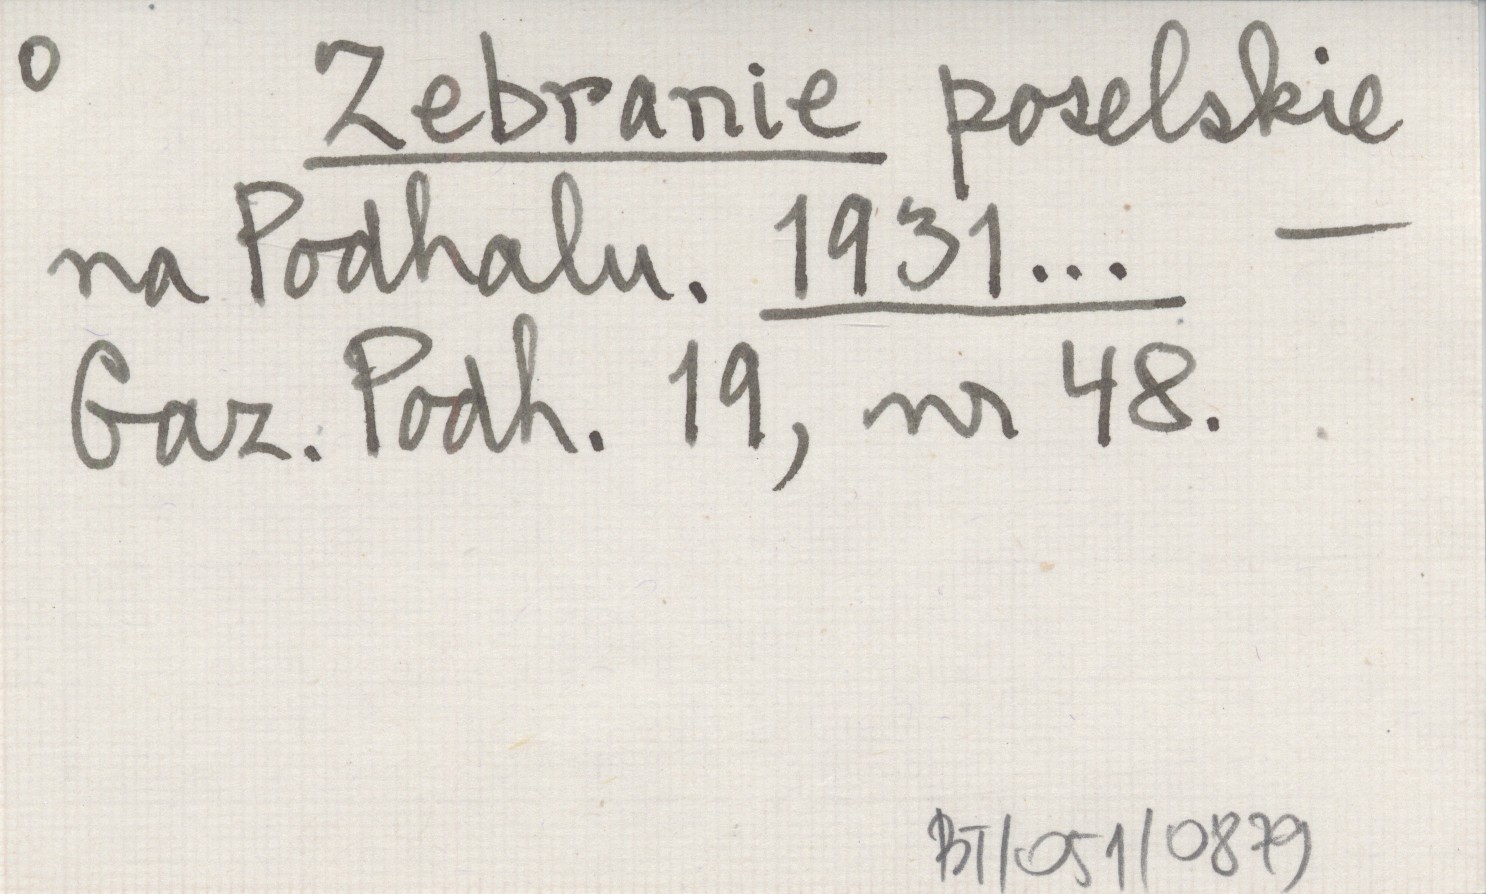 o Zebranie poselskie
na Podhalu. 1931... —
Gaz. Podh. 19, nr 48.
BT/051/0879